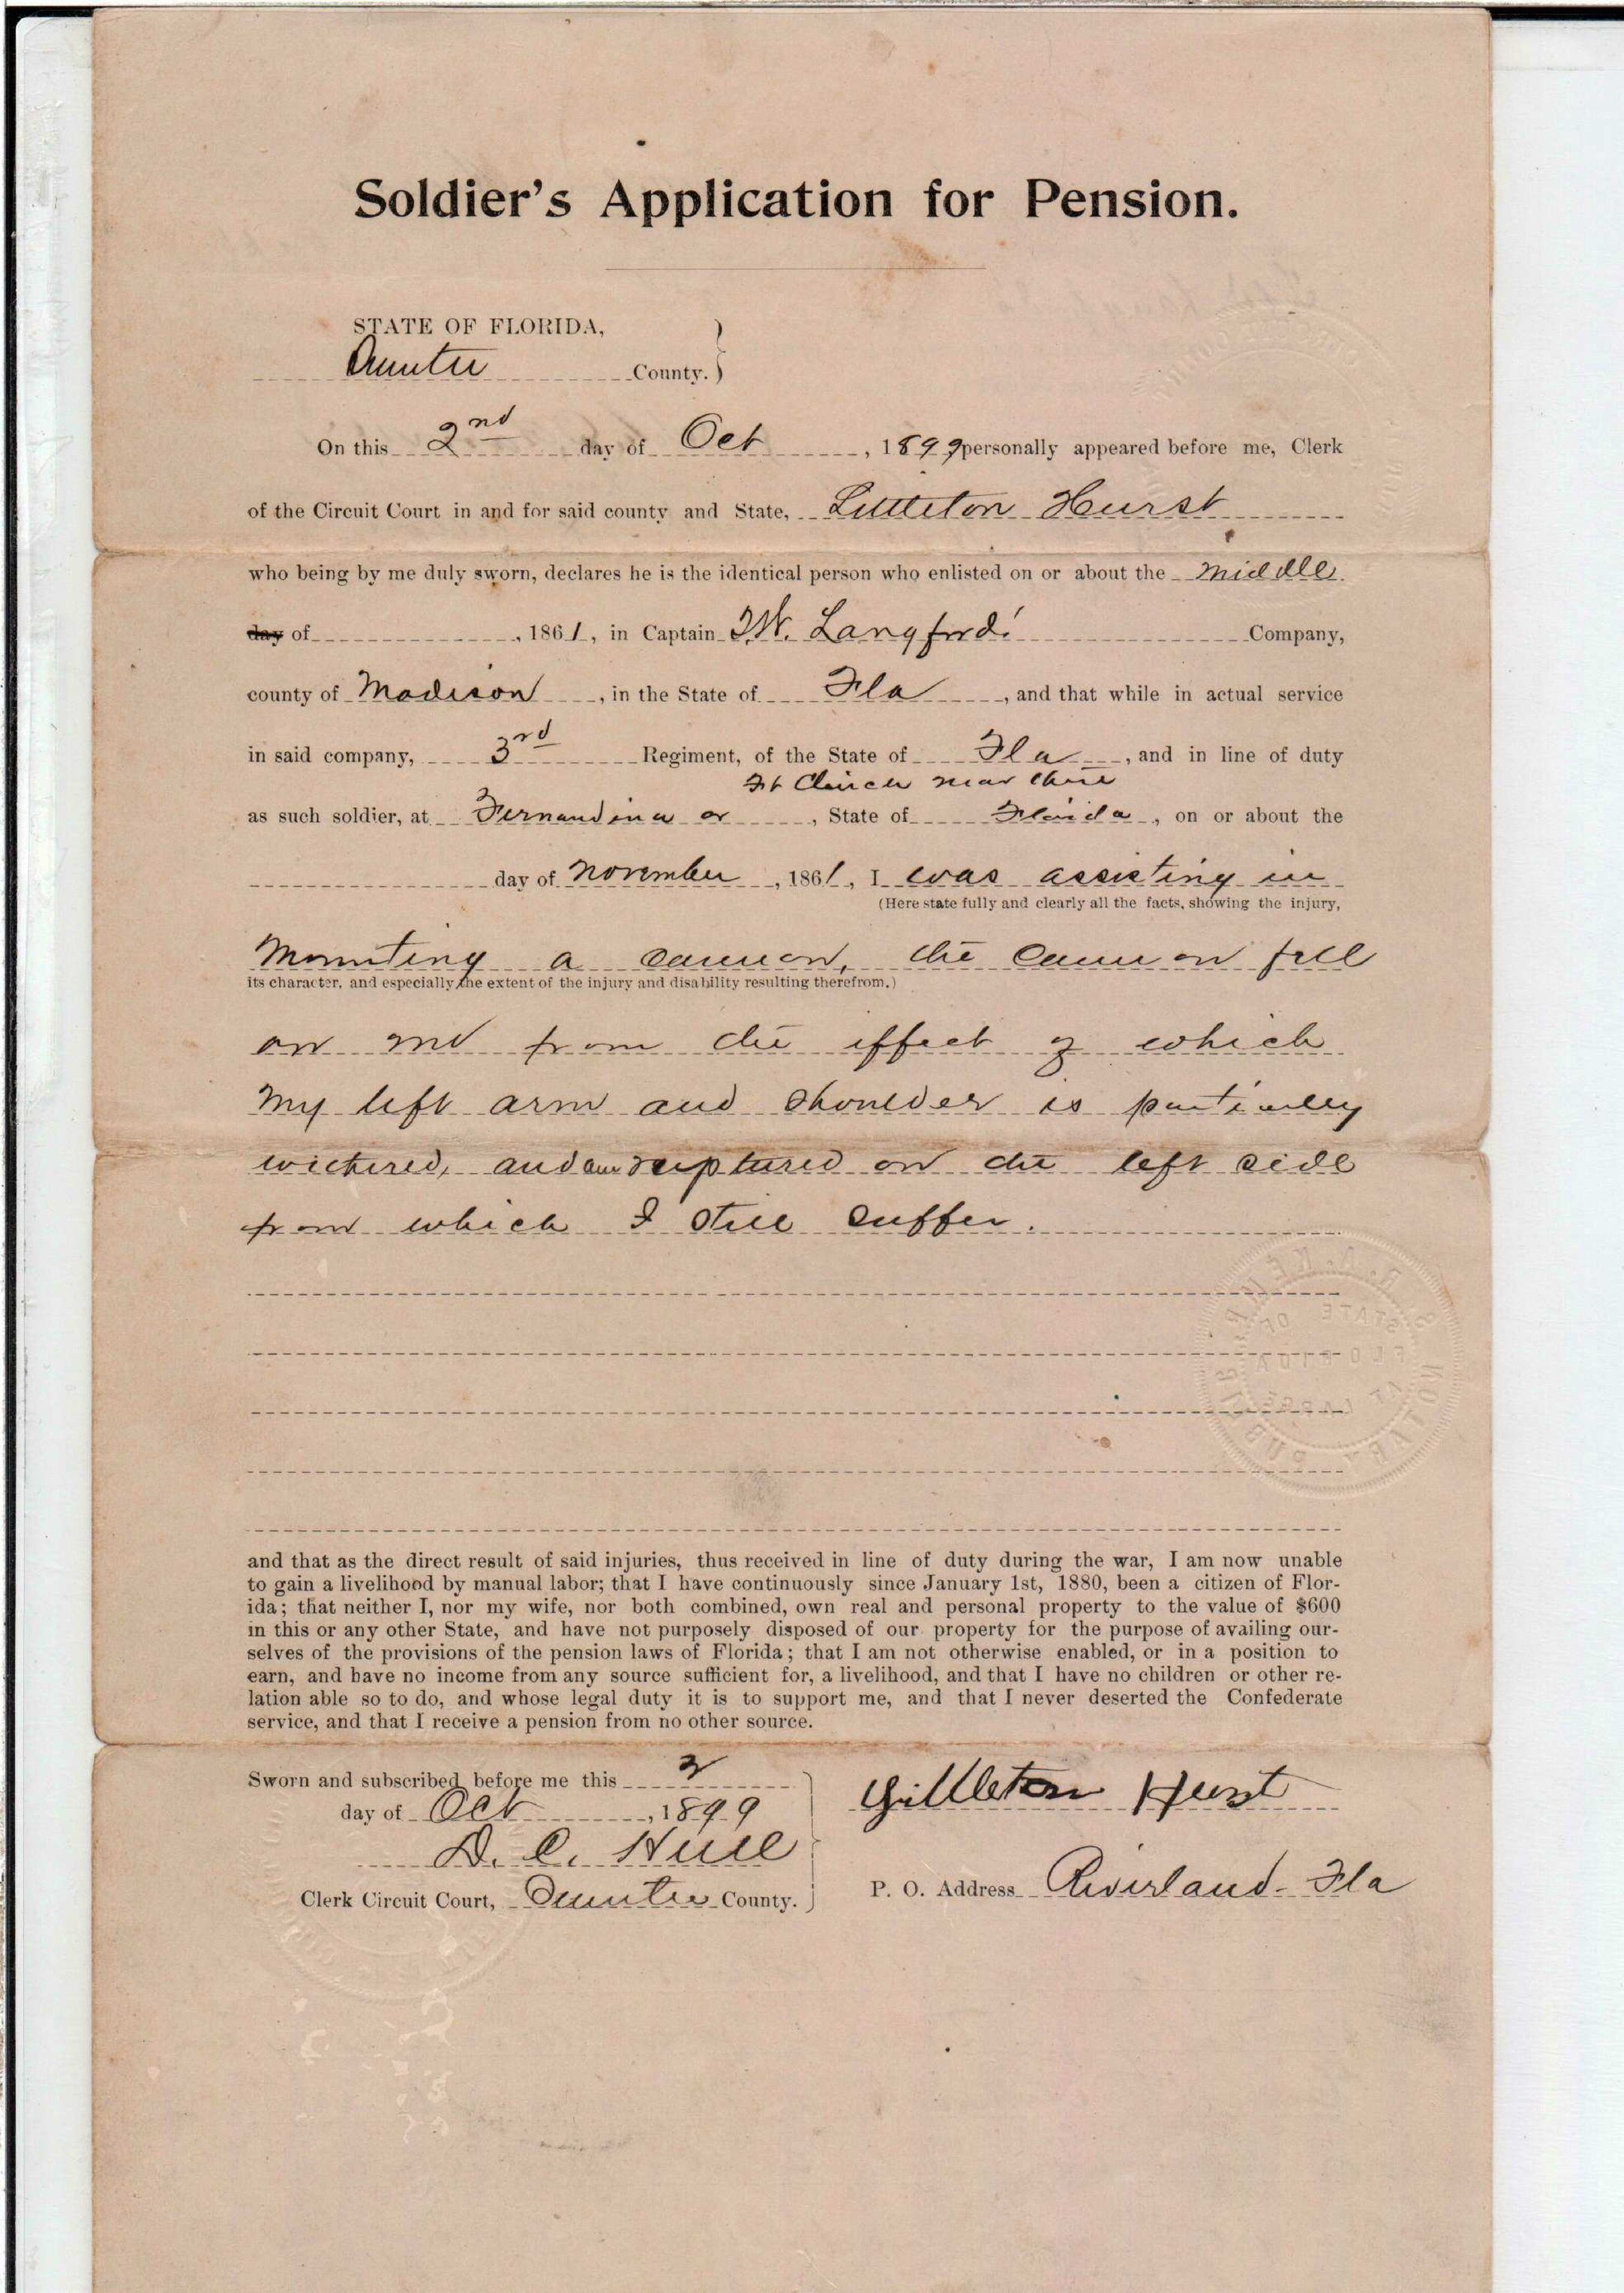 Soldier's Application for Pension.
STATE OF FLORIDA,
Sumter County.
On this 2nd day of Oct, 1899 personally appeared before me, Clerk
of the Circuit Court in and for said county and State, Littleton Hurst
who being by me duly sworn, declares he is the identical person who enlisted on or about the Middle
day of , 1861, in Captain Langford's Company,
county of Madison, in the State of Fla, and that while in actual service
in said company, 3rd Regiment, of the State of Fla, and in line of duty
Ft Clinch near there
as such soldier, at Fernandina or , State of Florida, on or about the
day of November, 1861, I was assisting in
(Here state fully and clearly all the facts, showing the injury,
Mounting a cannon, the cannon fell
its character, and especially the extent of the injury and disability resulting therefrom.)
on me from the effect of which
my left arm and shoulder is partially
withered, and am ruptured on the left side
from which I still suffer.
R. A. KEMP
STATE OF
FLORIDA
AT LARGE
NOTARY PUBLIC
and that as the direct result of said injuries, thus received in line of duty during the war, I am now unable
to gain a livelihood by manual labor; that I have continuously since January 1st, 1880, been a citizen of Flor-
ida; that neither I, nor my wife, nor both combined, own real and personal property to the value of $600
in this or any other State, and have not purposely disposed of our property for the purpose of availing our-
selves of the provisions of the pension laws of Florida; that I am not otherwise enabled, or in a position to
earn, and have no income from any source sufficient for, a livelihood, and that I have no children or other re-
lation able so to do, and whose legal duty it is to support me, and that I never deserted the Confederate
service, and that I receive a pension from no other source.
Sworn and subscribed before me this 2
day of Oct, 1899
Littleton Hurst
D. C. Hull
Clerk Circuit Court, Sumter County.
P. O. Address Riverland Fla